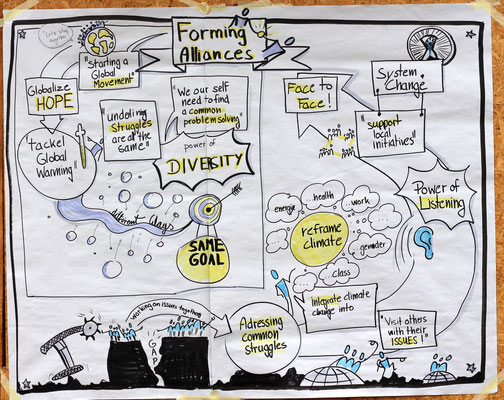 "Let's stay
together"
Forming
Alliances
"Starting a
Global
Movement"
Globalize
HOPE
"undeling
Struggles
are all the
same"
"We our self
need to find
a common
problemsolving"
tackel
Global
Warming"
power of
DIVERSITY
different Ways
SAME
GOAL
Face to
Face!
System
Change
"support
local
initiatives"
Power of
Listening
energie
health
work
gender
class
reframe
climate
Integrate climate
change into
"Visit others
with their
ISSUES!"
working on issues together
GAP
Adressing
common
struggles